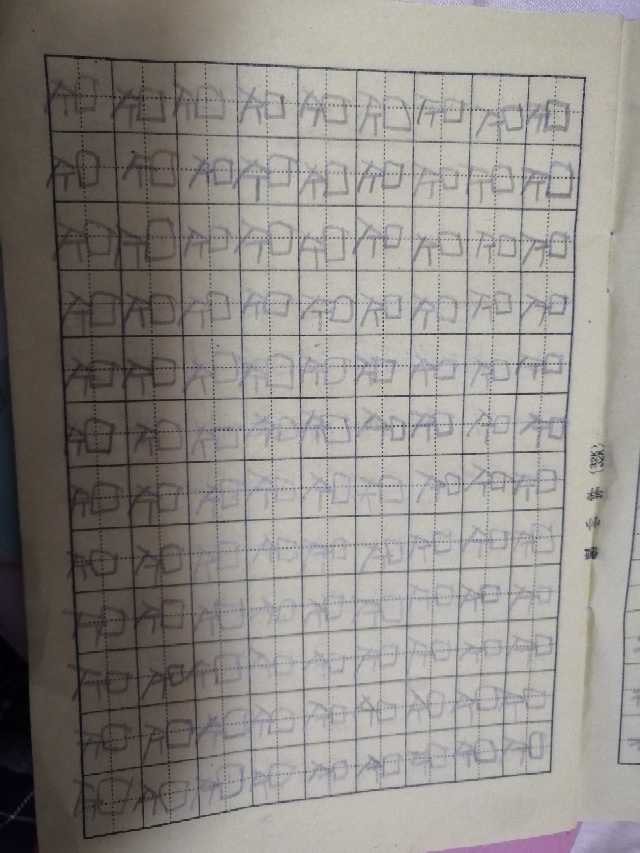 和和和和和和和和和
和和和和和和和和和
和和和和和和和和和
和和和和和和和和和
和和和和和和和和和
和和和和和和和和和
和和和和和和和和和
和和和和和和和和和
和和和和和和和和和
和和和和和和和和和
和和和和和和和和和
和和和和和和和和和